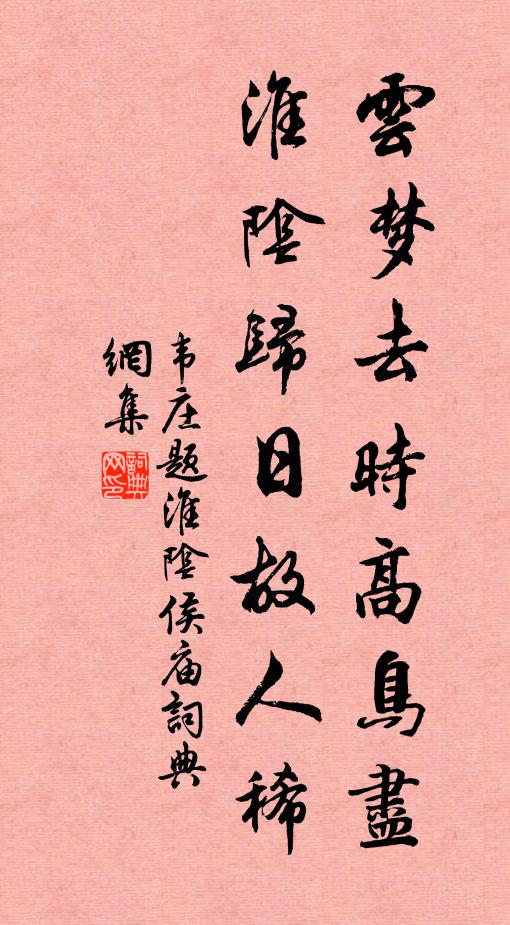 雲梦去時高鳥盡
淮陰歸日故人稀
韦庄题淮陰侯庙詞典
網集
詞典网印